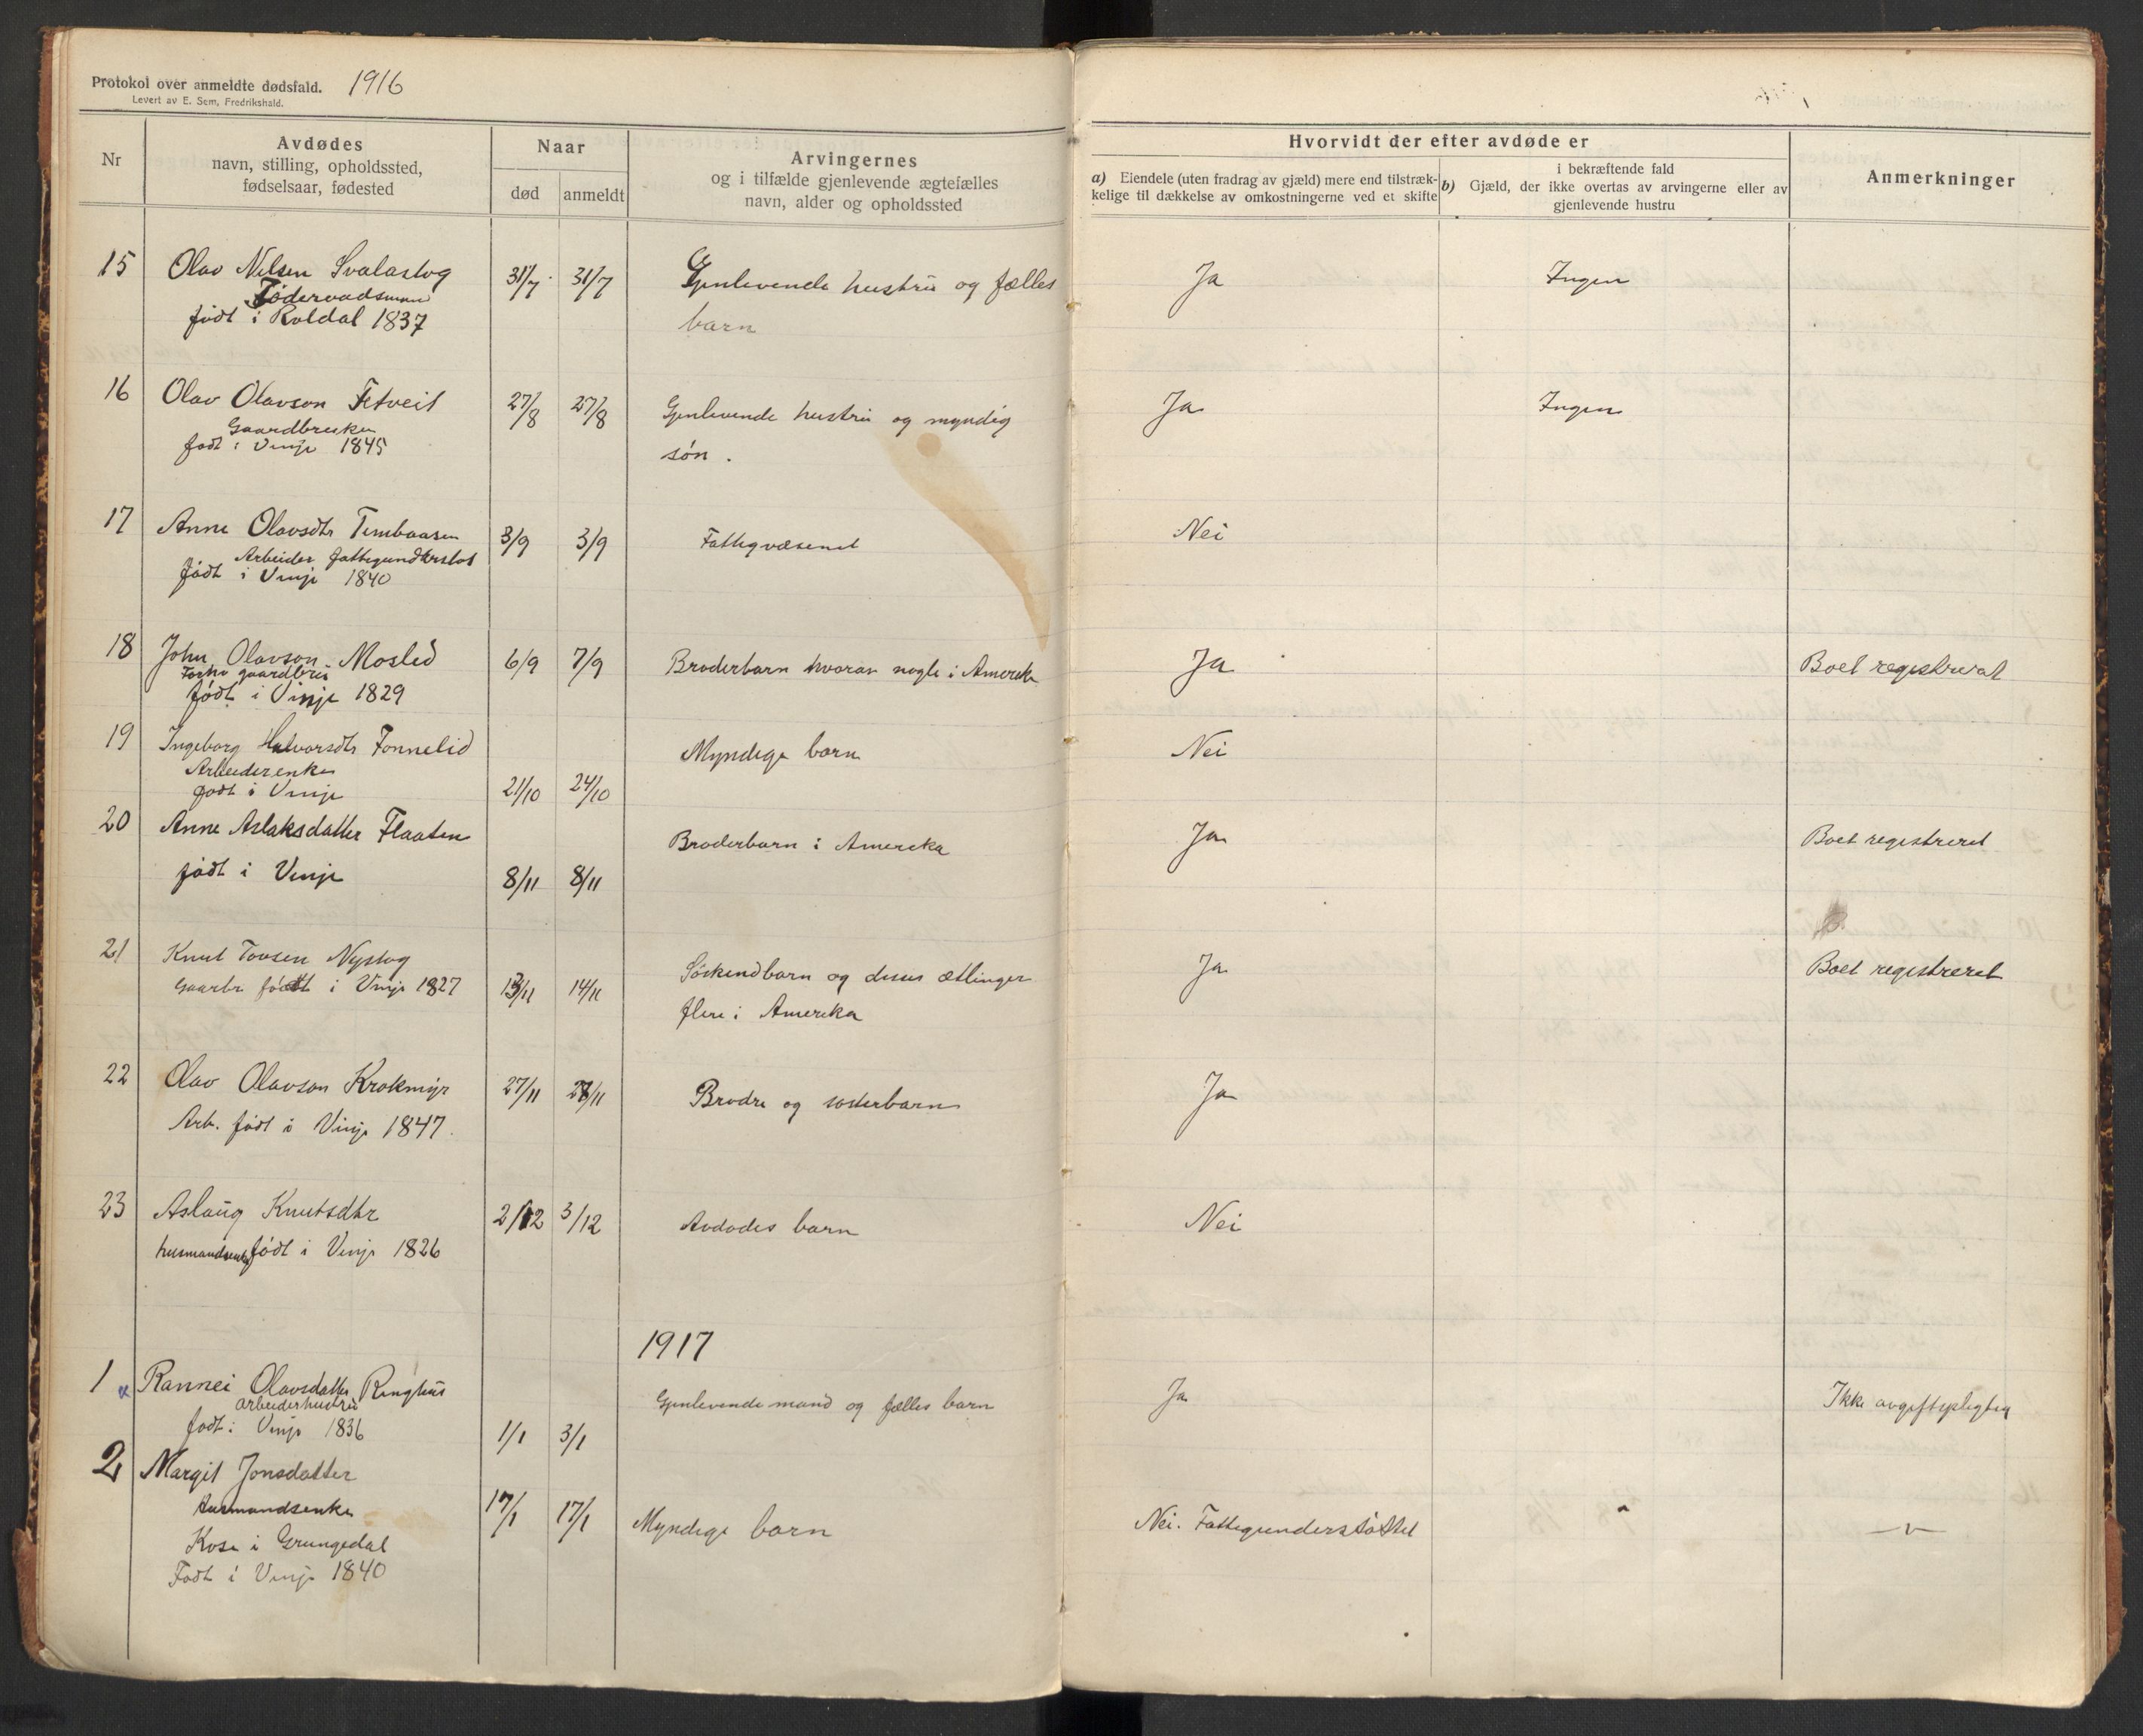 Protokol over anmeldte dødsfald. 1916
Levert av E. Sem, Fredrikshald.
Nr
Avdødes
navn, stilling, opholdssted,
fødselsaar, fødested
Naar
død
anmeldt
Arvingernes
og i tilfælde gjenlevende ægtefælles
navn, alder og opholdssted
Hvorvidt der efter avdøde er
a) Eiendele (uten fradrag av gjæld) mere end tilstræk-
kelige til dækkelse av omkostningerne ved et skifte
i bekræftende fald
b) Gjæld, der ikke overtas av arvingerne eller av
gjenlevende hustru
Anmerkninger
15 Olav Nilsen Svalastog 31/7 31/7 Gjenlevende hustru og fælles Ja Ingen
født i Roldal 1837 barn
16 Olav Olavson Fetveit 27/8 27/8 Gjenlevende hustru og myndig Ja Ingen
Gaardbruker
født i Vinje 1845 søn.
17 Anne Olavsdtr 3/9 3/9 Fattigvæsenet Nei
Arbeider
født i Vinje 1840
18 John Olavson Moslid 6/9 7/9 Broderbarn hvorav nogle i Amerika Ja Boet registreret
Forhv gaardbr
født i Vinje 1829
19 Ingeborg Halvorsdtr Tonnelid Myndige barn Nei
Arbeiderenke
født i Vinje 21/10 24/10
20 Anne Aslaksdatter Flaaten Broderbarn i Amerika Ja Boet registreret
født i Vinje 8/11 8/11
21 Knut Tovsen Nystog Søskendbarn og disses ætlinger Ja Boet registreret
Gaardbr født i Vinje 1827 13/11 14/11 flere i Amerika
22 Olav Olavson Krokmyr 27/11 28/11 Brødre og søsterbarn Ja
Arb. født i Vinje 1847.
23 Aslaug Knutsdtr 2/12 3/12 Avdødes barn Nei
husmandsenke født i Vinje 1826
1917
1 Rannei Olavsdatter Ringhus Gjenlevende mand og fælles barn Ja Ikke avgiftspligtig
arbeiderhustru
født i Vinje 1836 1/1 3/1
2 Margit Jonsdatter
Husmandsenke 17/1 17/1 Myndige barn Nei. Fattigunderstøttet —v—
Kosi i Grungedal
Født i Vinje 1840